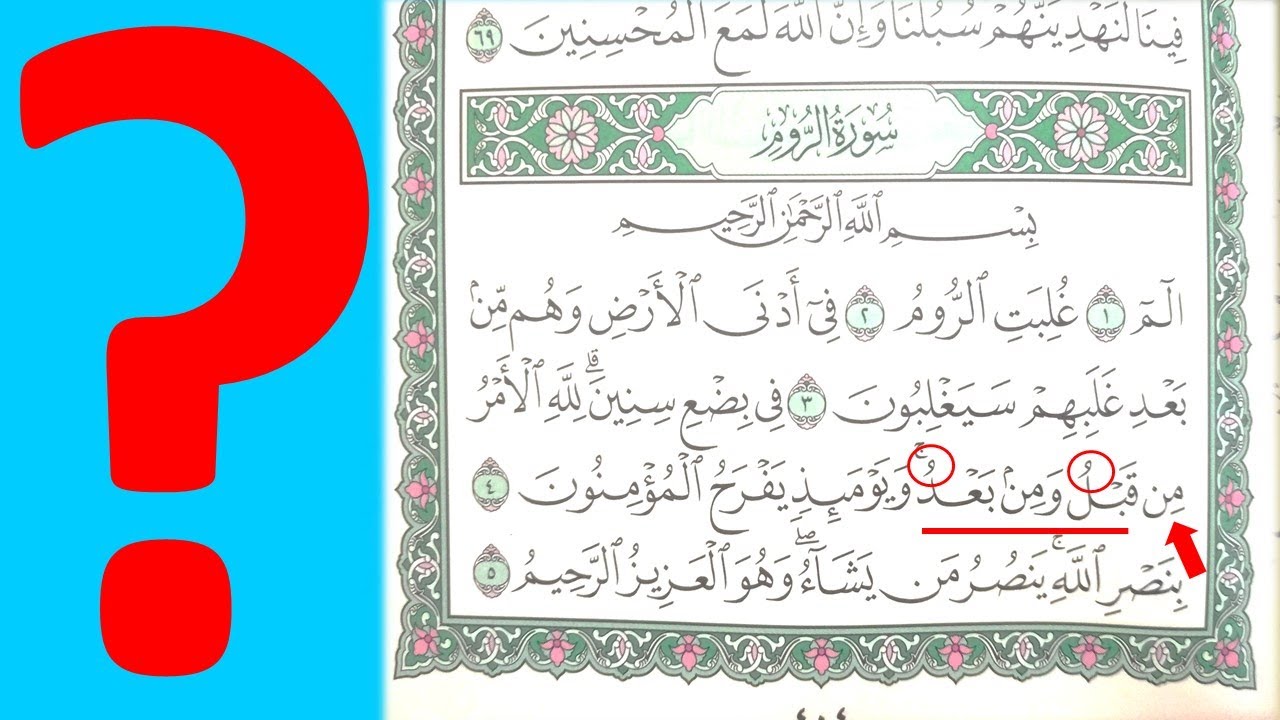 فِينَا لَنَهْدِيَنَّهُمْ سُبُلَنَا وَإِنَّ ٱللَّهَ لَمَعَ ٱلْمُحْسِنِينَ ٦٩
سُورَةُ الرُّومِ
بِسْمِ ٱللَّهِ ٱلرَّحْمَٰنِ ٱلرَّحِيمِ
الٓمٓ ١ غُلِبَتِ ٱلرُّومُ ٢ فِىٓ أَدْنَى ٱلْأَرْضِ وَهُم مِّنۢ
بَعْدِ غَلَبِهِمْ سَيَغْلِبُونَ ٣ فِى بِضْعِ سِنِينَ ۗ لِلَّهِ ٱلْأَمْرُ
مِن قَبْلُ وَمِنۢ بَعْدُ ۚ وَيَوْمَئِذٍ يَفْرَحُ ٱلْمُؤْمِنُونَ ٤
بِنَصْرِ ٱللَّهِ ۚ يَنصُرُ مَن يَشَآءُ ۖ وَهُوَ ٱلْعَزِيزُ ٱلرَّحِيمُ ٥
?